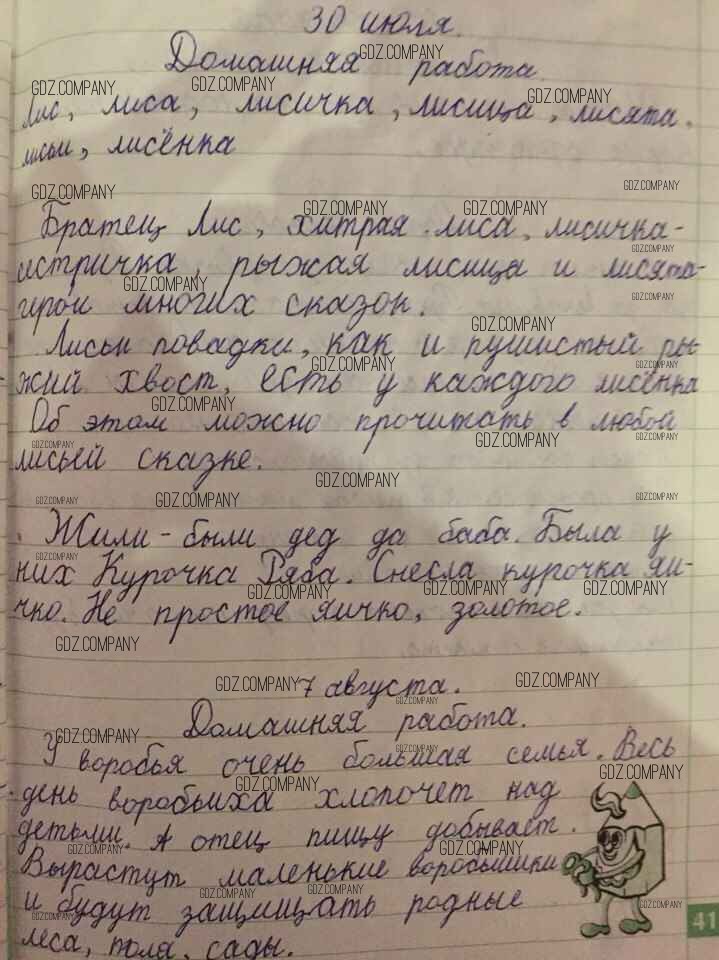 30 июля.
Домашняя работа.
Лис, лиса, лисичка, лисица, лисята.
лисьи, лисёнка
Братец Лис, хитрая лиса, лисичка-
сестричка, рыжая лисица и лисята-
герои многих сказок.
Лисьи повадки, как и пушистый ры-
жий хвост, есть у каждого лисёнка
Об этом можно прочитать в любой
лисьей сказке.
Жили-были дед да баба. Была у
них Курочка Ряба. Снесла курочка яи-
чко. Не простое яичко, золотое.
7 августа.
Домашняя работа.
У воробья очень большая семья. Весь
день воробьиха хлопочет над
детьми. А отец пищу добывает.
Вырастут маленькие воробьишки
и будут защищать родные
леса, поля, сады.
41
GDZ.COMPANY